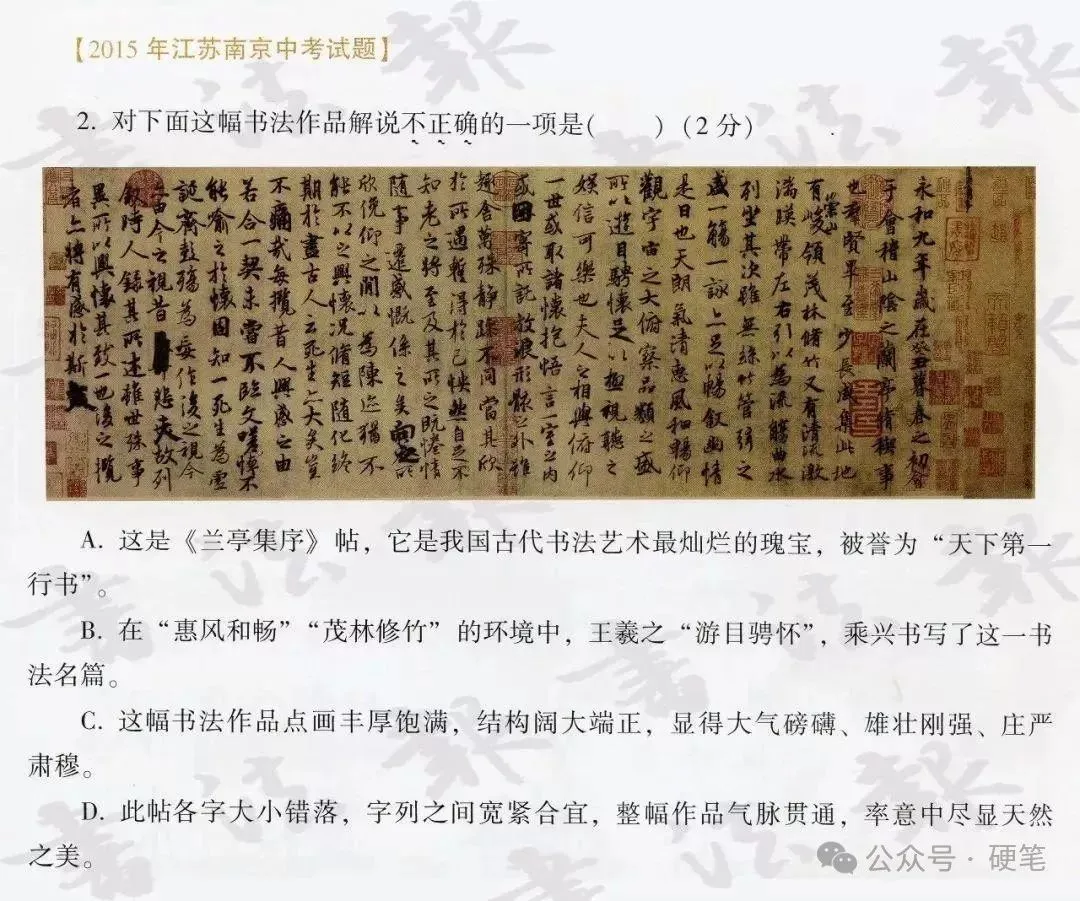 【2015 年江苏南京中考试题】
2. 对下面这幅书法作品解说不正确的一项是(　　)(2 分)
永和九年歲在癸丑暮春之初會
于會稽山陰之蘭亭脩稧事
也羣賢畢至少長咸集此地
有崇山峻領茂林脩竹又有清流激
湍暎帶左右引以為流觴曲水
列坐其次雖無絲竹管弦之
盛一觴一詠亦足以暢叙幽情
是日也天朗氣清惠風和暢仰
觀宇宙之大俯察品類之盛
所以遊目騁懷足以極視聽之
娛信可樂也夫人之相與俯仰
一世或取諸懷抱悟言一室之內
或因寄所託放浪形骸之外雖
趣舍萬殊靜躁不同當其欣
於所遇蹔得於己怏然自足不
知老之將至及其所之既惓情
隨事遷感慨係之矣向之所
欣俛仰之閒以為陳迹猶不
能不以之興懷況脩短隨化終
期於盡古人云死生亦大矣豈
不痛哉每攬昔人興感之由
若合一契未嘗不臨文嗟悼不
能喻之於懷固知一死生為虛
誕齊彭殤為妄作後之視今
亦由今之視昔悲夫故列
叙時人錄其所述雖世殊事
異所以興懷其致一也後之攬
者亦將有感於斯文
A. 这是《兰亭集序》帖，它是我国古代书法艺术最灿烂的瑰宝，被誉为“天下第一
行书”。
B. 在“惠风和畅”“茂林修竹”的环境中，王羲之“游目骋怀”，乘兴书写了这一书
法名篇。
C. 这幅书法作品点画丰厚饱满，结构阔大端正，显得大气磅礴、雄壮刚强、庄严
肃穆。
D. 此帖各字大小错落，字列之间宽紧合宜，整幅作品气脉贯通，率意中尽显天然
之美。
公众号·硬笔